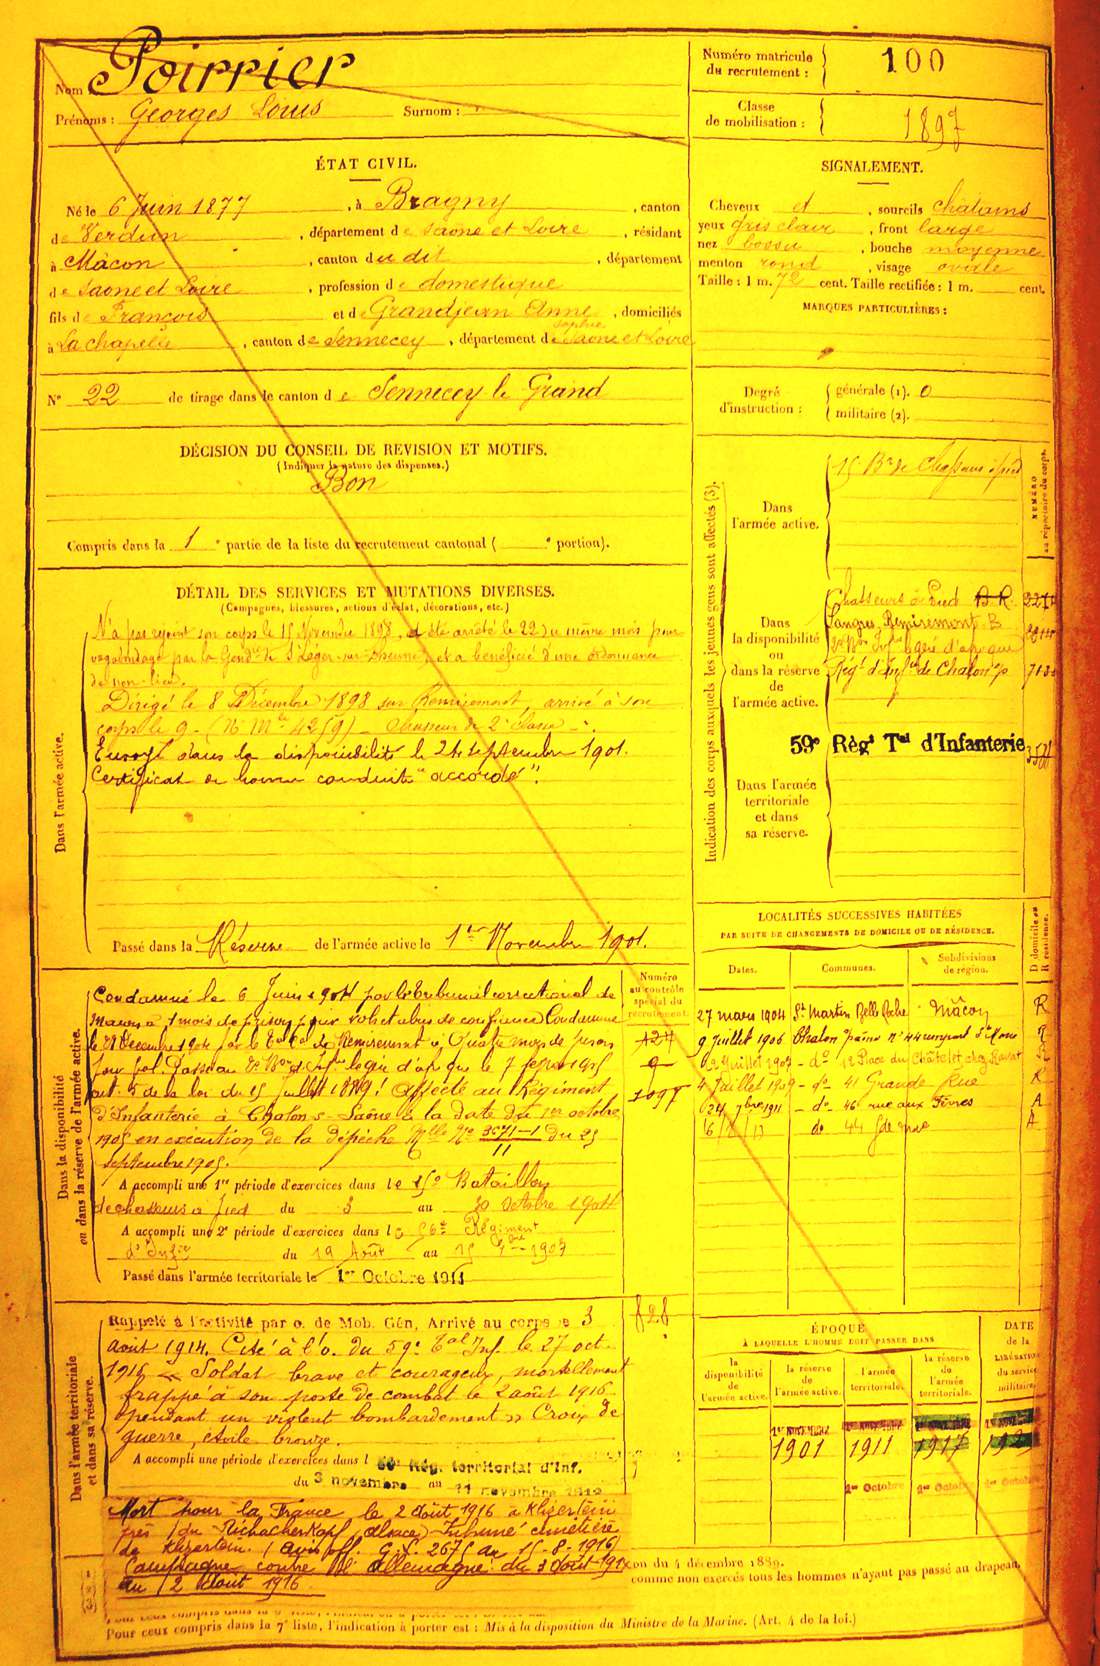 Nom : Poirrier
Prénoms : Georges Louis Surnom :
Numéro matricule du recrutement : 100
Classe de mobilisation : 1897
ÉTAT CIVIL.
Né le 6 Juin 1877, à Bragny, canton
de Verdun, département de Saone et Loire, résidant
à Mâcon, canton du dit, département
de Saone et Loire, profession de domestique
fils de François et de Grandjean Anne Sophie, domiciliés
à La chapelle, canton de Sennecey, département de Saone et Loire
SIGNALEMENT.
Cheveux et, sourcils chatains
yeux gris clair, front large
nez bossu, bouche moyenne
menton rond, visage ovale
Taille : 1 m. 72 cent. Taille rectifiée : 1 m. cent.
MARQUES PARTICULIÈRES :
N° 22 de tirage dans le canton de Sennecey le Grand
Degré d'instruction : générale (1). 0
militaire (2).
DÉCISION DU CONSEIL DE REVISION ET MOTIFS.
(Indiquer la nature des dispenses.)
Bon
Compris dans la 1e partie de la liste du recrutement cantonal ( e portion).
DÉTAIL DES SERVICES ET MUTATIONS DIVERSES.
(Campagnes, blessures, actions d'éclat, décorations, etc.)
Dans l'armée active.
N'a pas rejoint son corps le 15 Novembre 1898, a été arrêté le 22 du même mois pour
vagabondage par la Gendie de St Léger-sur-Dheune, et a bénéficié d'une ordonnance
de non-lieu.
Dirigé le 8 Décembre 1898 sur Remiremont, arrivé à son
corps le 9 - (N° Mle 4259) - Chasseur de 2e classe -
Envoyé dans la disponibilité le 24 septembre 1901.
Certificat de bonne conduite "accordé".
Passé dans la Réserve de l'armée active le 1er Novembre 1901.
Indication des corps auxquels les jeunes gens sont affectés (3).
NUMÉRO au répertoire du corps.
Dans l'armée active.
15 Bn de Chasseurs à pied
Dans la disponibilité ou dans la réserve de l'armée active.
Chasseurs à Pied
Langres, Remiremont
Régt d'Infie de Chalon s/s
59e Régt Tal d'Infanterie
Dans l'armée territoriale et dans sa réserve.
LOCALITÉS SUCCESSIVES HABITÉES
PAR SUITE DE CHANGEMENTS DE DOMICILE OU DE RÉSIDENCE.
Dates. Communes. Subdivisions de région. D domicile ou R résidence.
27 mars 1904 St Martin Belle Roche Mâcon R
9 Juillet 1906 Chalon s/Saône n° 44 rempart Ste Marie R
Juillet 1907 - do - 12 Place du Châtelet
4 Juillet 1909 - do - 41 Grande Rue R
24 7bre 1911 - do - 46 rue aux Fèvres
do 44
Dans la disponibilité ou dans la réserve de l'armée active.
Numéro au contrôle spécial du recrutement.
124
9
1097
Condamné le 6 Juin 1904 par le tribunal correctionnel de
Macon à 1 mois de prison pour vol et abus de confiance Condamné
le Décembre 1904 par le de Remiremont à Quatre mois de prison
pour vol. Passé au
art. 5 de la loi du 15 Juillet 1889! Affecté au Régiment
d'Infanterie à Chalon s-Saône à la date du 1er octobre
1905 en exécution de la dépêche Mlle No du 25
septembre 1905.
A accompli une 1re période d'exercices dans le 15e Bataillon
de chasseurs à pied du 3 au 30 octobre 1904
A accompli une 2e période d'exercices dans le 56e Régiment
d'Infie du 19 Août au 15 7bre 1907
Passé dans l'armée territoriale le 1er Octobre 1911
Dans l'armée territoriale et dans sa réserve.
828
Rappelé à l'activité par o. de Mob. Gén, Arrivé au corps le 3
août 1914. Cité à l'o. du 59e Tal Inf. le 27 oct.
1916 « Soldat brave et courageux, mortellement
frappé à son poste de combat le 2 août 1916
pendant un violent bombardement » Croix de
guerre, étoile bronze.
A accompli une période d'exercices dans l 59e Rég. territorial d'Inf.
du 3 novembre au 11 novembre 1912
Mort pour la France le 2 Août 1916 à Klizerstein
près du Richackerkopf, Alsace) Inhumé cimetière
de Klizerstein. (avis off. G.F. 2675 du 15-8-1916)
Campagne contre l'Allemagne: du 3 Août 1914
au 2 Août 1916.
ÉPOQUE
À LAQUELLE L'HOMME DOIT PASSER DANS
la disponibilité de l'armée active. la réserve de l'armée active. l'armée territoriale. la réserve de l'armée territoriale.
DATE de la LIBÉRATION du service militaire.
1er NOVEMBRE
1901 1911 1917
1er Octobre 1er Octobre 1er Octobre
(1)
(2)
(3)
on du 4 décembre 1889.
comme non exercés tous les hommes n'ayant pas passé au drapeau.
Pour ceux compris dans la 7e liste, l'indication à porter est : Mis à la disposition du Ministre de la Marine. (Art. 4 de la loi.)